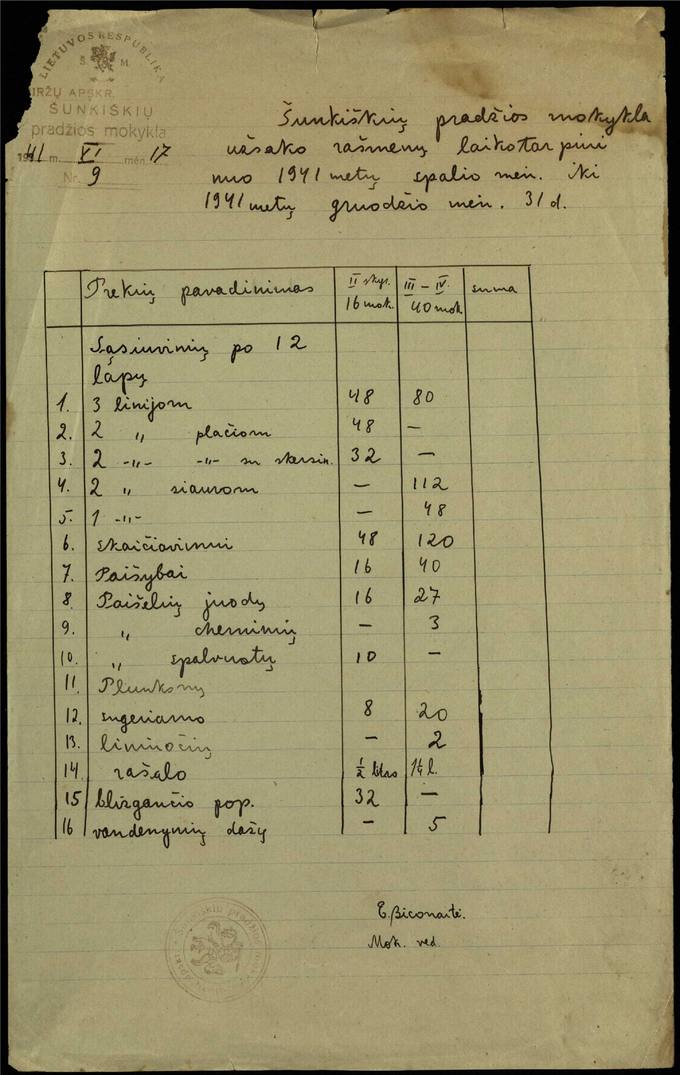 LIETUVOS RESPUBLIKA
Š. M.
IRŽŲ APSKR.
ŠUNKIŠKIŲ
pradžios mokykla
1941 m. VI mėn. 17
Nr. 9
Šunkiškių pradžios mokykla
užsako rašmenų laikotarpiui
nuo 1941 metų spalio mėn. iki
1941 metų gruodžio mėn. 31 d.
Prekių pavadinimas II skyr. 16 mok. III – IV. 40 mok. suma
Sąsiuvinių po 12
lapų
1. 3 linijom 48 80
2. 2 „ plačiom 48 —
3. 2 -„- -„- su skersin. 32 —
4. 2 „ siaurom — 112
5. 1 -„- — 48
6. skaičiavimui 48 120
7. Paišybai 16 40
8. Paišelių juodų 16 27
9. „ cheminių — 3
10. „ spalvuotų 10 —
11. Plunksnų
12. sugeriamo 8 20
13. liniuočių — 2
14 rašalo ½ litro 1¼ l.
15 blizgančio pop. 32 —
16 vandenynių dažų — 5
E. Biconaitė.
Mok. ved.